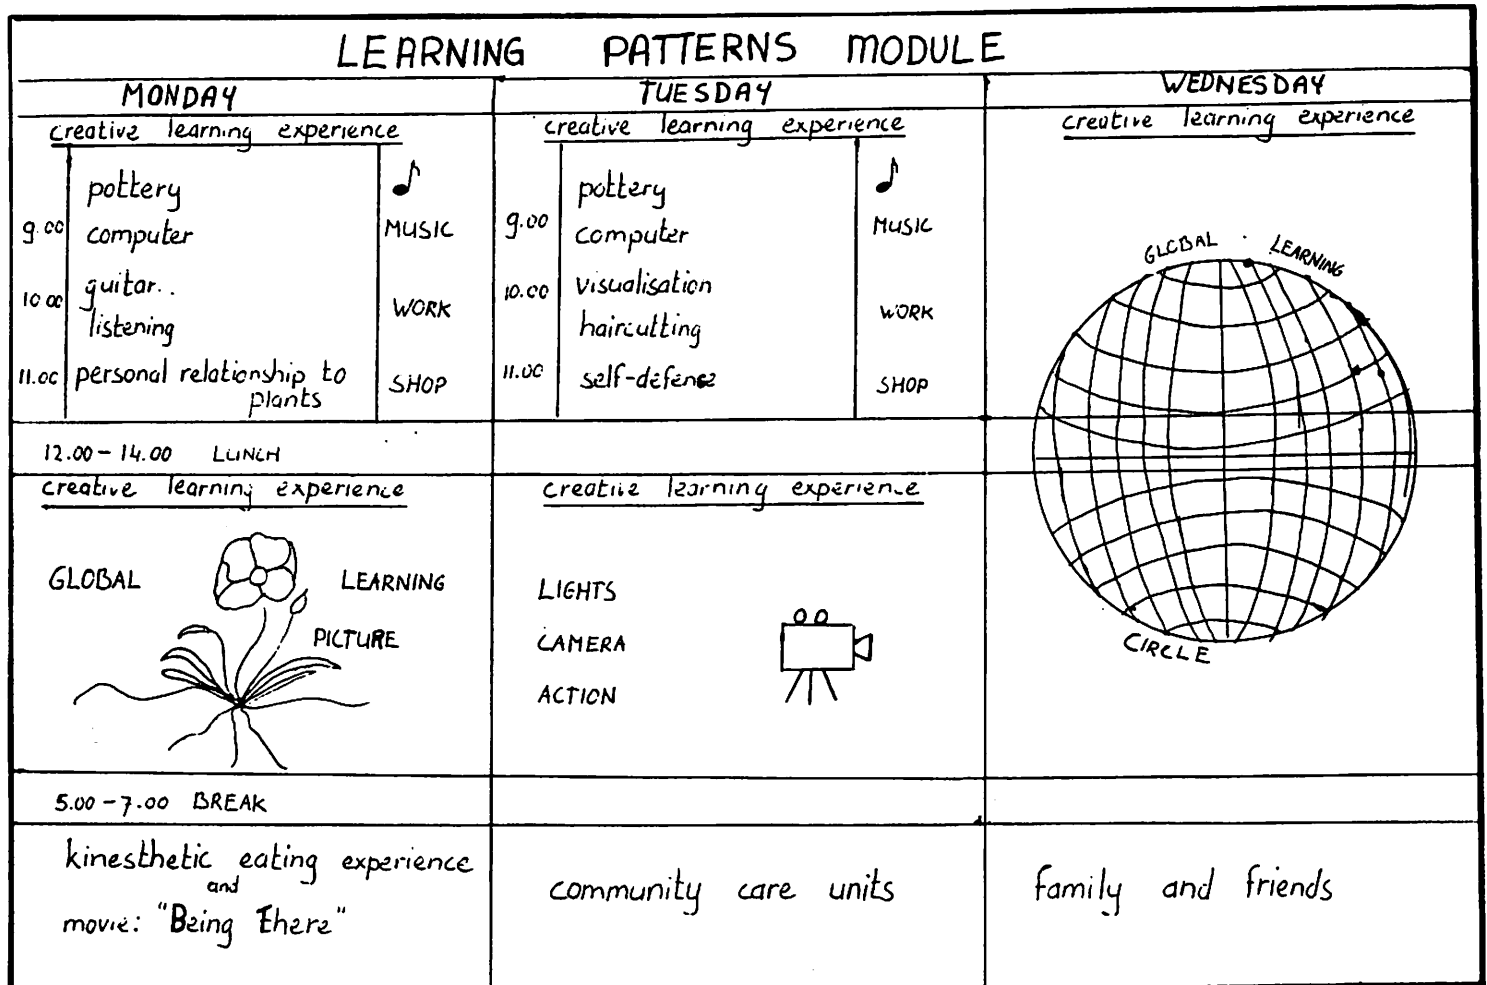 LEARNING PATTERNS MODULE
MONDAY
creative learning experience
pottery
9.00 computer
guitar..
10.00 listening
11.00 personal relationship to
plants
MUSIC
WORK
SHOP
12.00 – 14.00 LUNCH
creative learning experience
GLOBAL LEARNING
PICTURE
5.00 – 7.00 BREAK
kinesthetic eating experience
and
movie: "Being There"
TUESDAY
creative learning experience
pottery
9.00 computer
10.00 visualisation
haircutting
11.00 self-defense
MUSIC
WORK
SHOP
creative learning experience
LIGHTS
CAMERA
ACTION
community care units
WEDNESDAY
creative learning experience
GLOBAL LEARNING
CIRCLE
family and friends